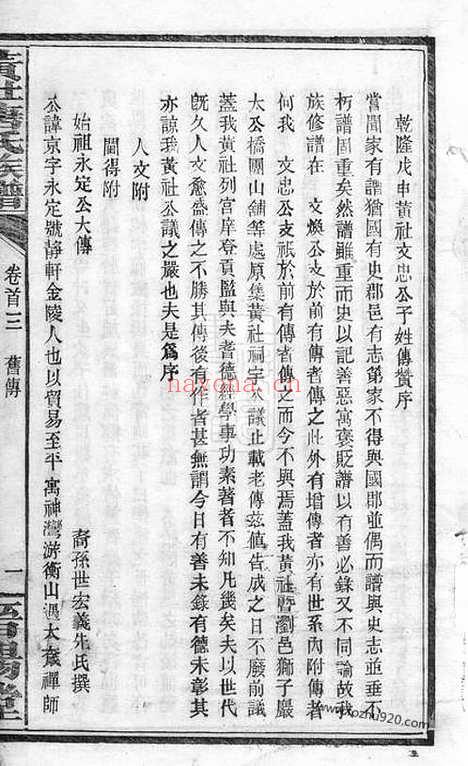 乾隆戊申黃社文忠公子姓傳贊序
嘗聞家有譜猶國有史郡邑有志第家不得與國郡並偶而譜與史志並垂不
朽譜固重矣然譜雖重而史以記善惡寓褒貶譜以有善必錄又不同論故我
族修譜在 文煥公支於前有傳者傳之此外有增傳者亦有世系內附傳者
何我 文忠公支祇於前有傳者傳之而今不與焉蓋我黃社暨瀏邑獅子巖
太公橋團山舖等處原集黃社祠宇公議止載老傳茲值告成之日不廢前議
蓋我黃社列宮庠登貢監與夫耆德社學事功素著者不知凡幾矣夫以世代
旣久人文愈盛傳之不勝其傳後有作者甚無謂今日有善未錄有德未彰其
亦諒我黃社公議之嚴也夫是爲序
人文附
閫得附
始祖永定公大傳
裔孫世宏義先氏撰
公諱京字永定號靜軒金陵人也以貿易至平寓神灣游衡山遇太歲禪師
卷首三 舊傳
一
naxona.cn
www.kozhu920.com